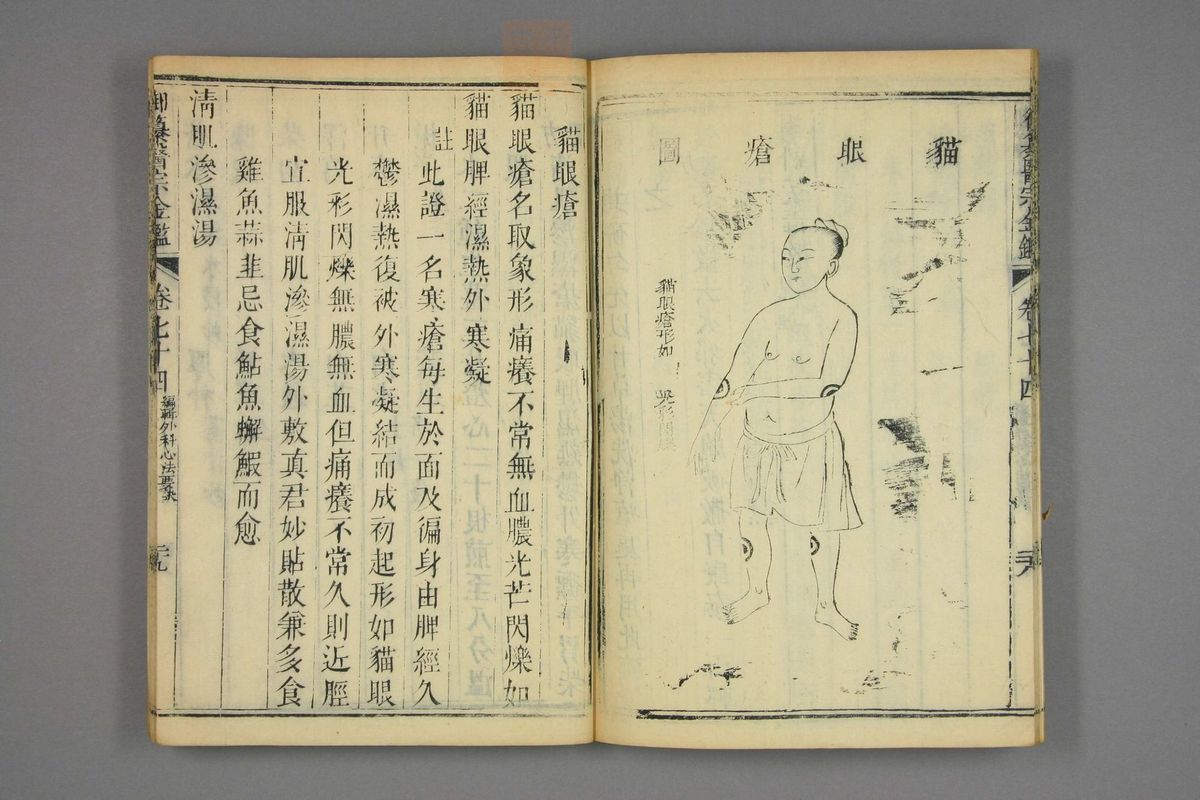 貓眼瘡圖
貓眼瘡形如
卷七十四
貓眼瘡
貓眼瘡名取象形痛癢不常無血膿光芒閃爍如
貓眼脾經濕熱外寒凝
註此證一名寒瘡每生於面及徧身由脾經久
鬱濕熱復被外寒凝結而成初起形如貓眼
光彩閃爍無膿無血但痛癢不常久則近脛
宜服淸肌滲濕湯外敷真君妙貼散兼多食
雞魚蒜韭忌食鮎魚蠏鰕而愈
淸肌滲濕湯
御纂醫宗金鑑
卷七十四
編輯外科心法要訣
二十九